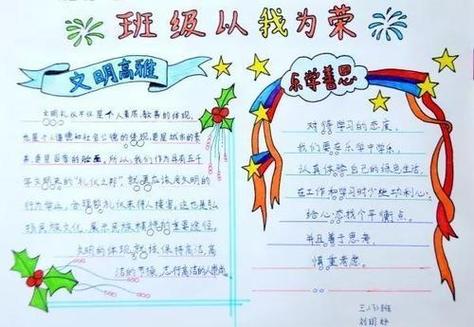 班级从我为荣
文明高雅
文明礼仪不仅是个人素质、教养的体现,
也是个人道德和社会公德的体现,更是城市的素
养,更是国家的脸面。所以,我们作为具有五千
年文明史的“礼仪之邦”,就更应该用文明的
行为举止,合理的礼仪来待人接客。这也是弘
扬民族文化、展示民族精神的重要途径。
文明的体现就按,保持高洁,高
洁的节操,志行高洁的人
乐学善思
对待学习的态度,
我们要在乐学中学乐,
认真体验自己的绿色生活,
在工作和学习时少些功利心,
给心态找个平衡点,
并且善于思考,
慎重考虑。
三、班
刘明